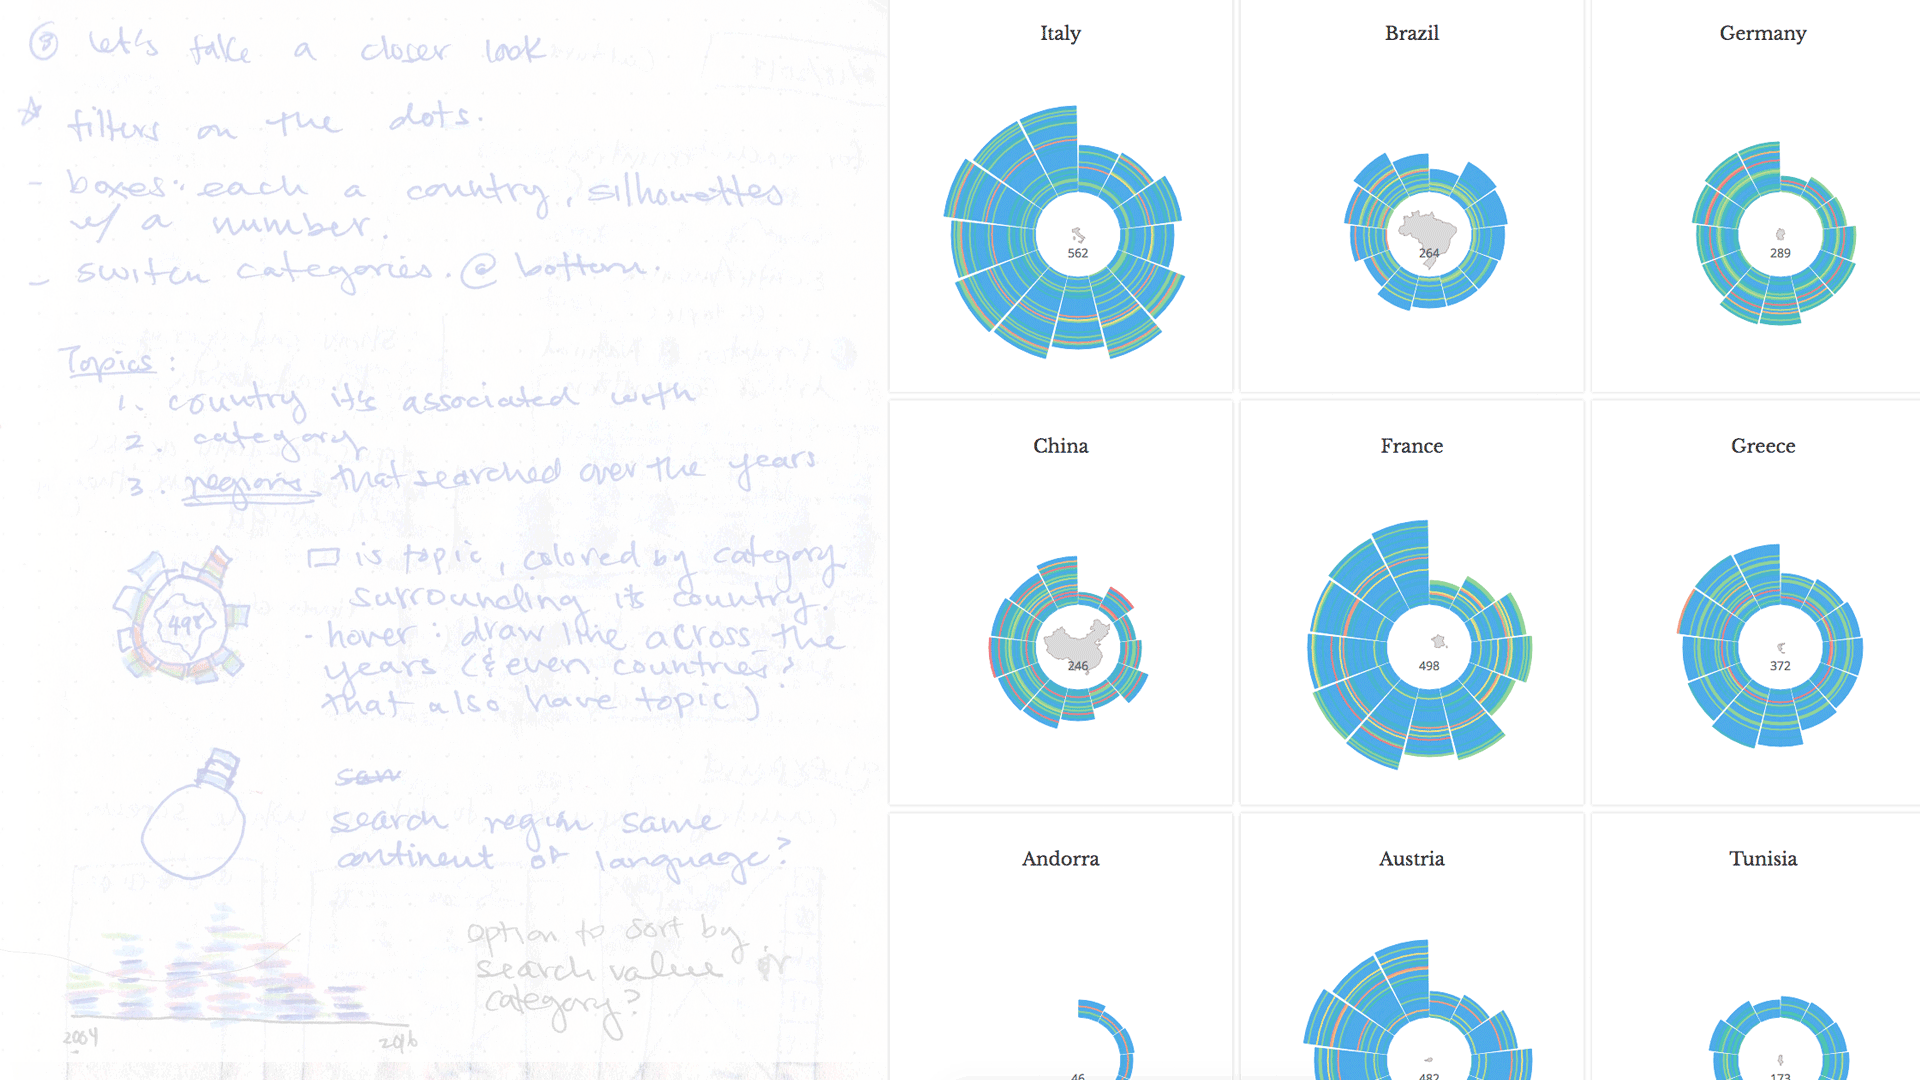 ③ let's take a closer look
☆ filters on the dots.
- boxes: each a country, silhouettes
w/ a number.
- switch categories. @ bottom.
Topics:
1. country it's associated with
2. category
3. regions that searched over the years
498
▭ is topic, colored by category
surrounding its country.
- hover: draw line across the
years (& even countries?
that also have topic)
search region same
continent or language?
option to sort by
search value or
category?
2004
2016
Italy
562
Brazil
264
Germany
289
China
246
France
498
Greece
372
Andorra
46
Austria
482
Tunisia
173